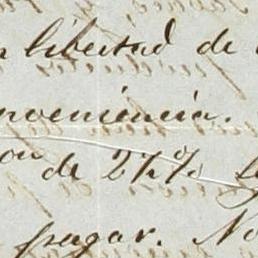 libertad de
nveniencia.
on de 2½%
pagar. No